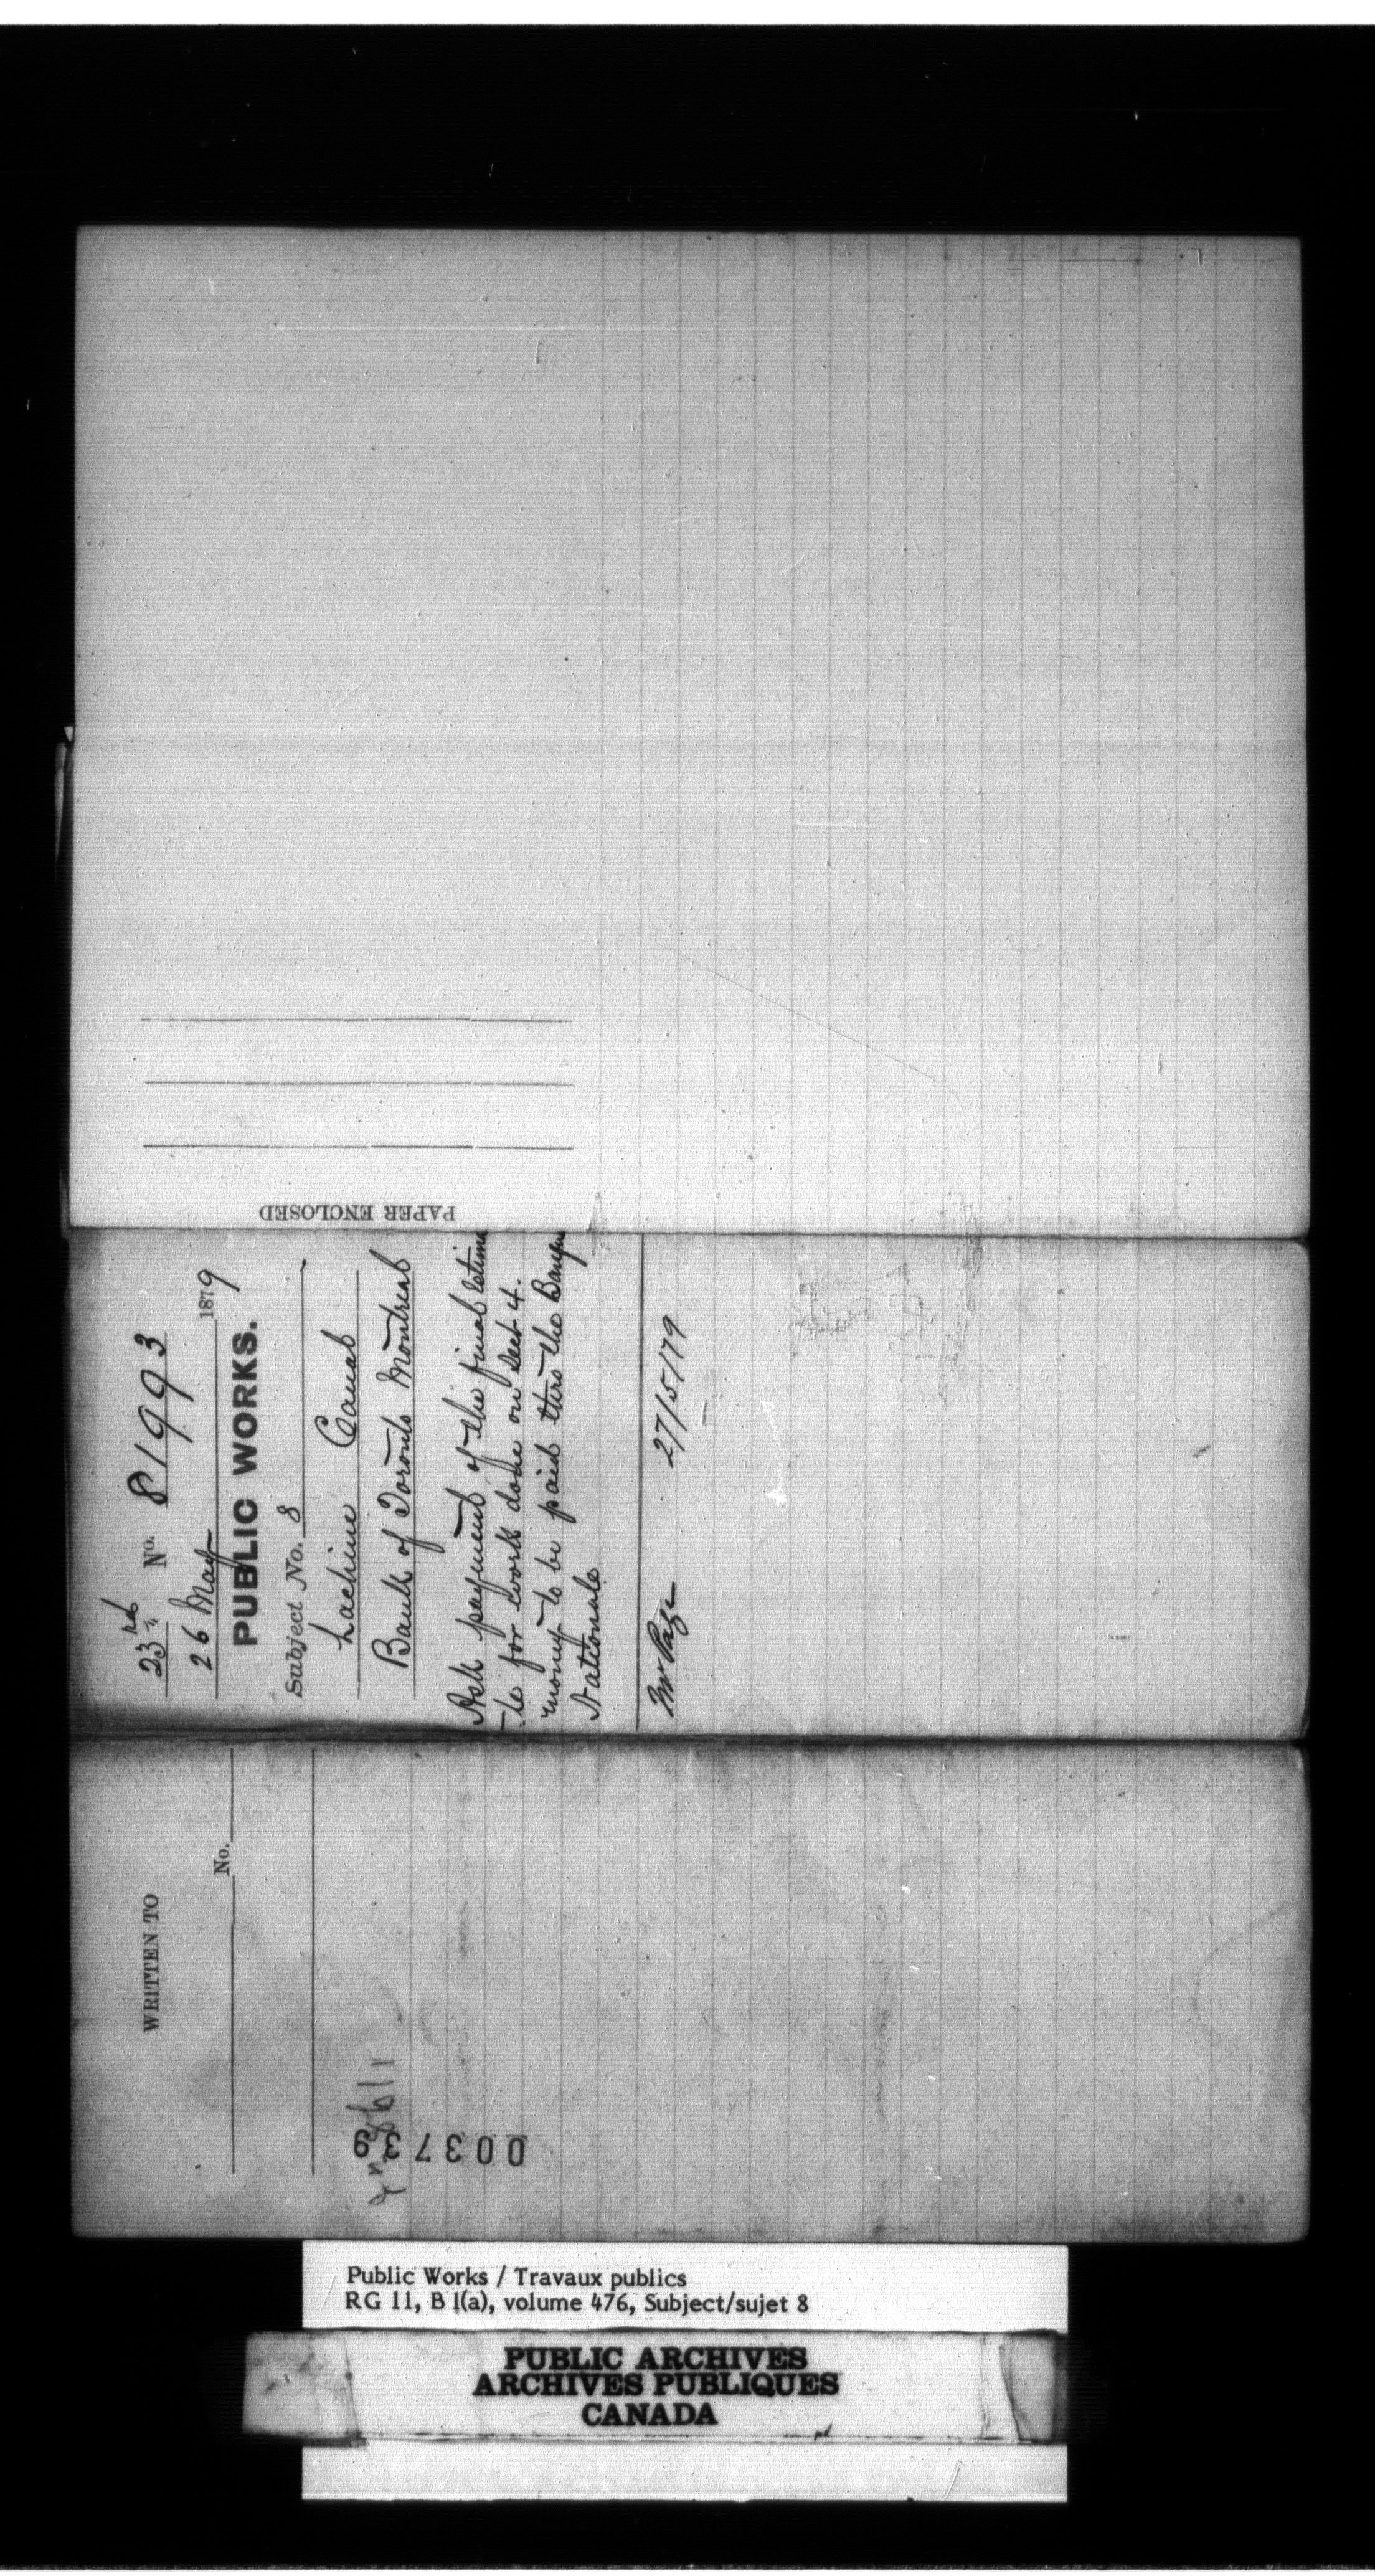 PAPER ENCLOSED
23rd No. 81993
26 May 1879
PUBLIC WORKS.
Subject No. 8
Lachine Canal
Bank of Toronto Montreal
Ask payment of the final Estima
te for work done on Sect 4.
money to be paid thro the Banque
Nationale
Mr Page 27/5/79
WRITTEN TO
No.
003739
Public Works / Travaux publics
RG 11, B 1(a), volume 476, Subject/sujet 8
PUBLIC ARCHIVES
ARCHIVES PUBLIQUES
CANADA